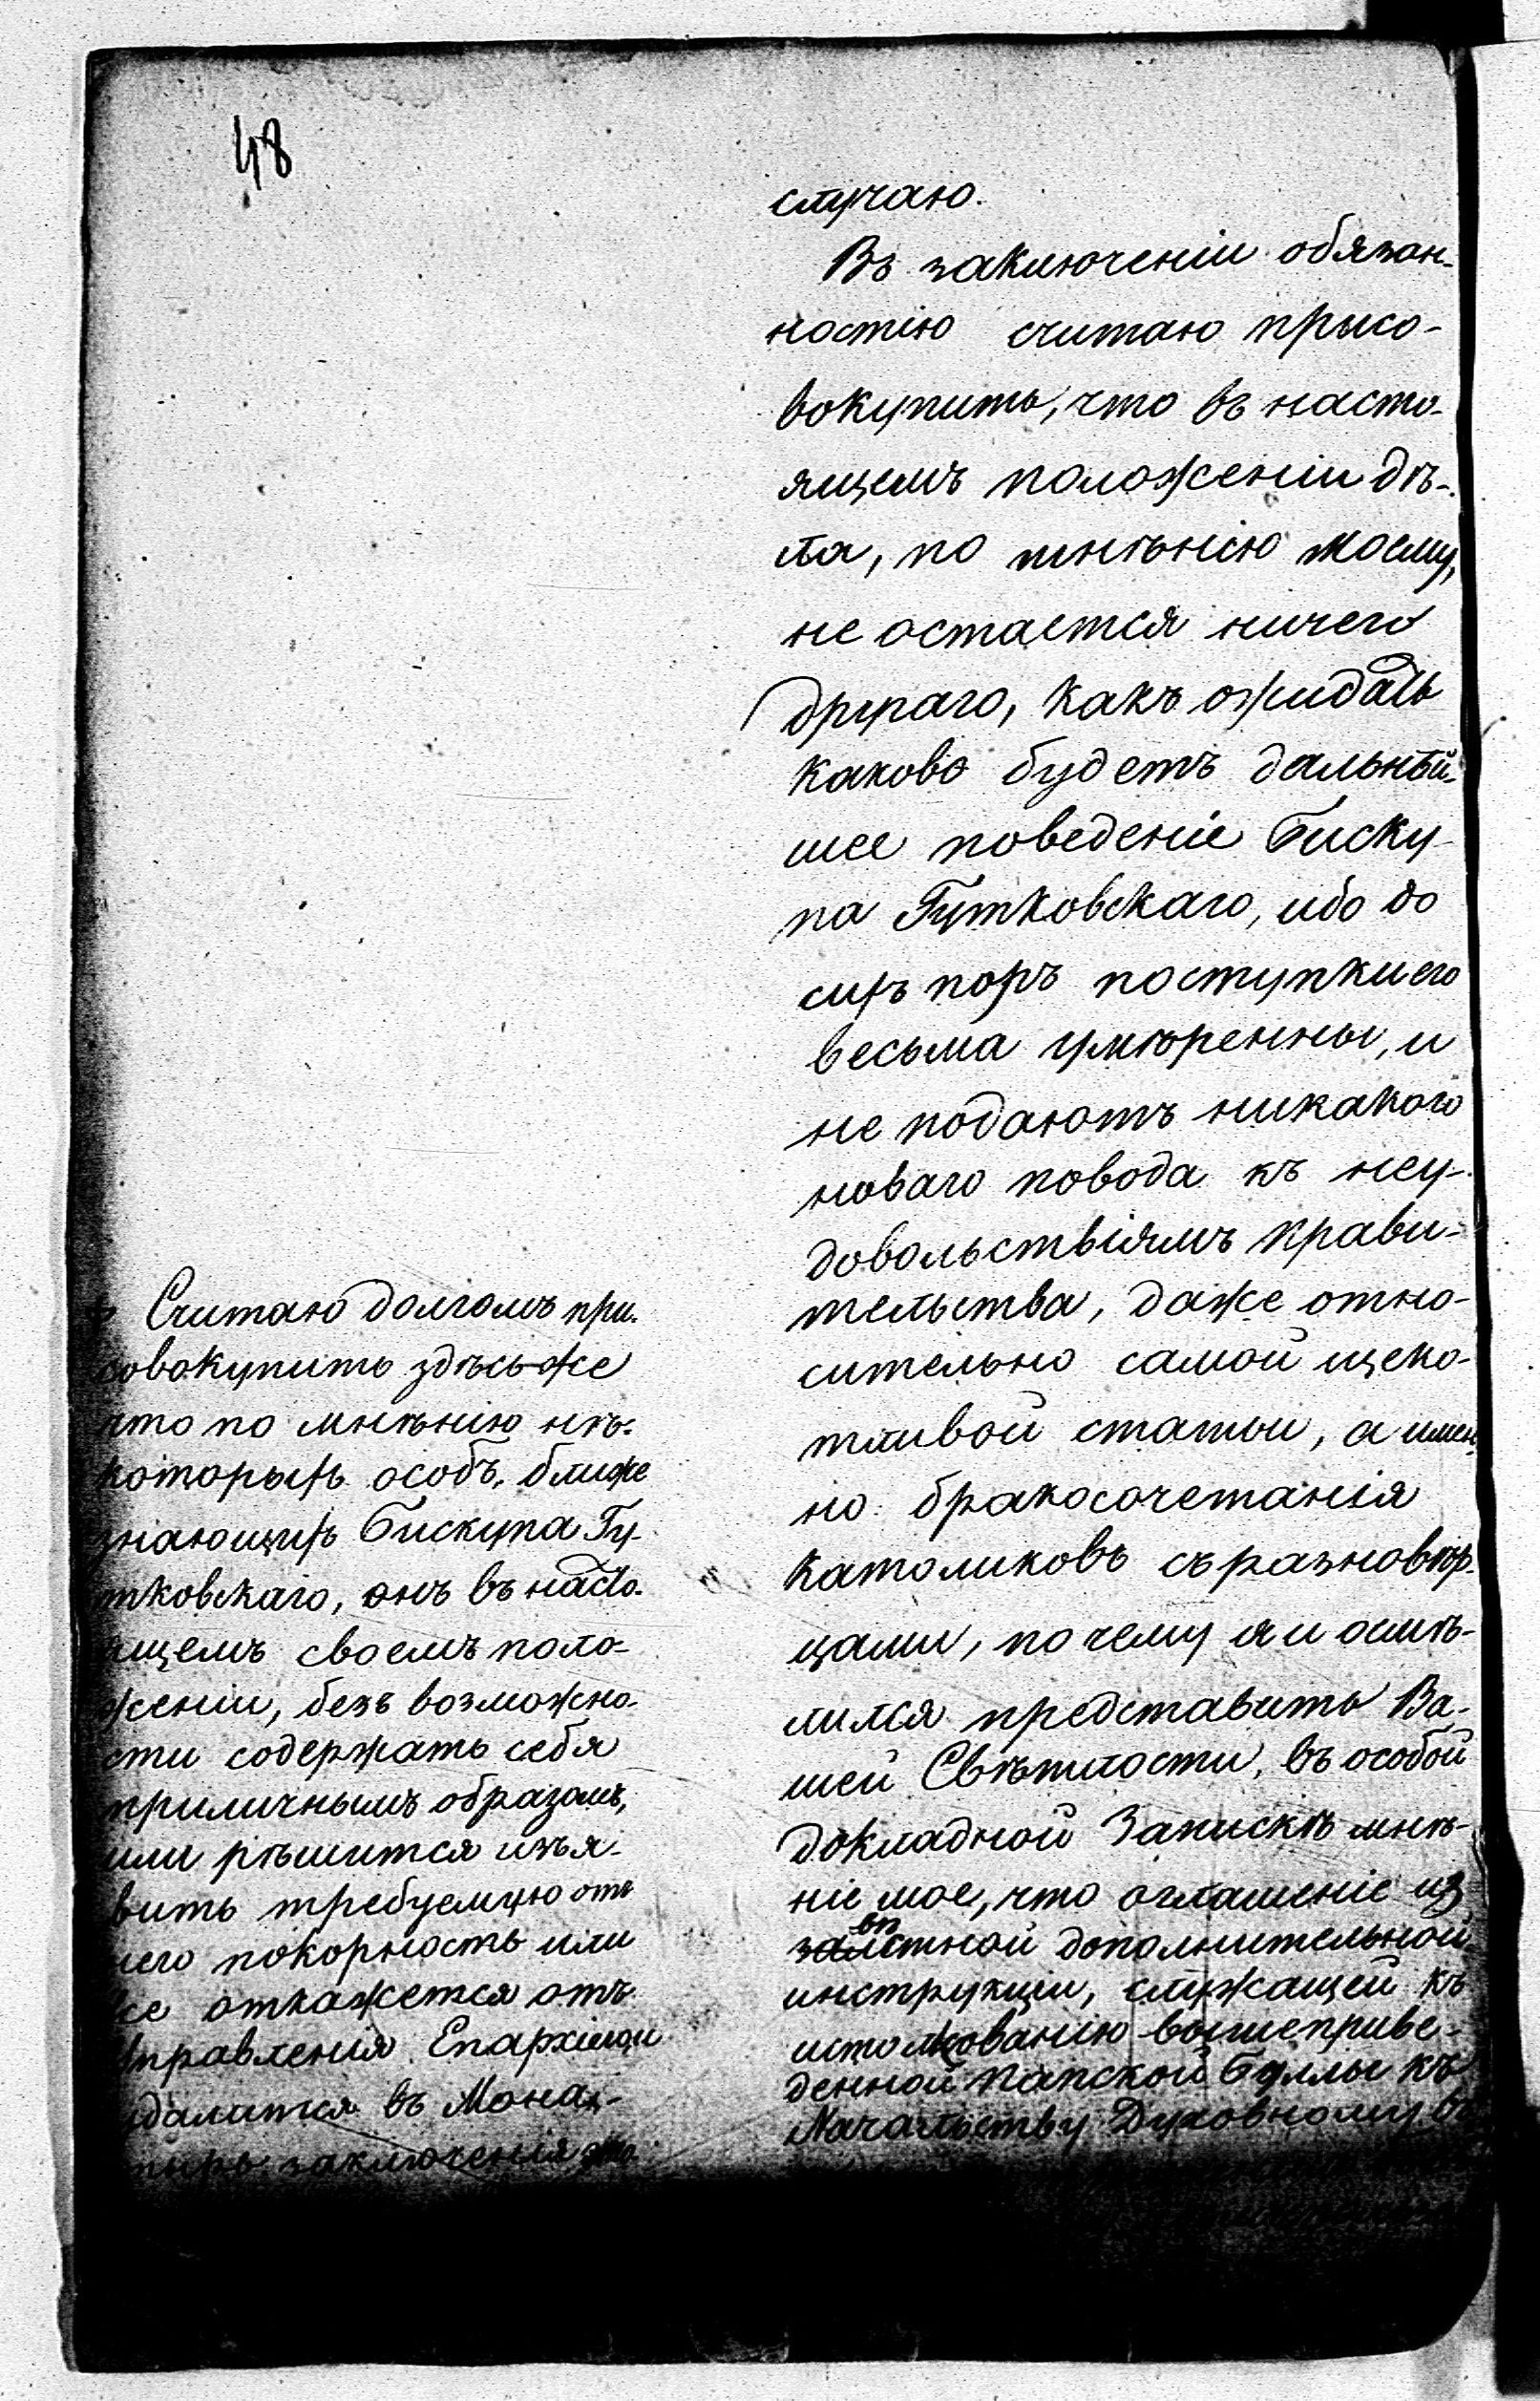 48
случаю.
Въ заключеніи обязан-
ностію считаю присо-
вокупить, что въ насто-
ящемъ положеніи дѣ-
ла, по мнѣнію моему,
не остается ничего
другаго, какъ ожидать
каково будетъ дальнѣй-
шее поведеніе Биску-
па Гутковскаго, ибо до
сихъ поръ поступки его
весьма умѣренны, и
не подаютъ никакого
новаго повода къ неу-
довольствіямъ прави-
тельства, даже отно-
сительно самой щеко-
тливой статьи, а имен-
но: бракосочетанія
католиковъ съ разновѣр-
цами, почему я и осмѣ-
лился представить Ва-
шей Свѣтлости, въ особой
докладной Запискѣ мнѣ-
ніе мое, что оглашеніе из
вѣстной дополнительной
инструкціи, служащей къ
истолкованію вышеприве-
денной Папской Буллы къ
Начальству Духовному въ
Считаю долгомъ при-
совокупить здѣсь-же
что по мнѣнію нѣ-
которыхъ особъ, ближе
знающихъ Бискупа Гу-
тковскаго, онъ въ насто-
ящемъ своемъ поло-
женіи, безъ возможно-
сти содержать себя
приличнымъ образомъ,
или рѣшится изъя-
вить требуемую отъ
него покорность или
же откажется отъ
Управленія Епархіею и
удалится въ Мона-
стырь заключенія